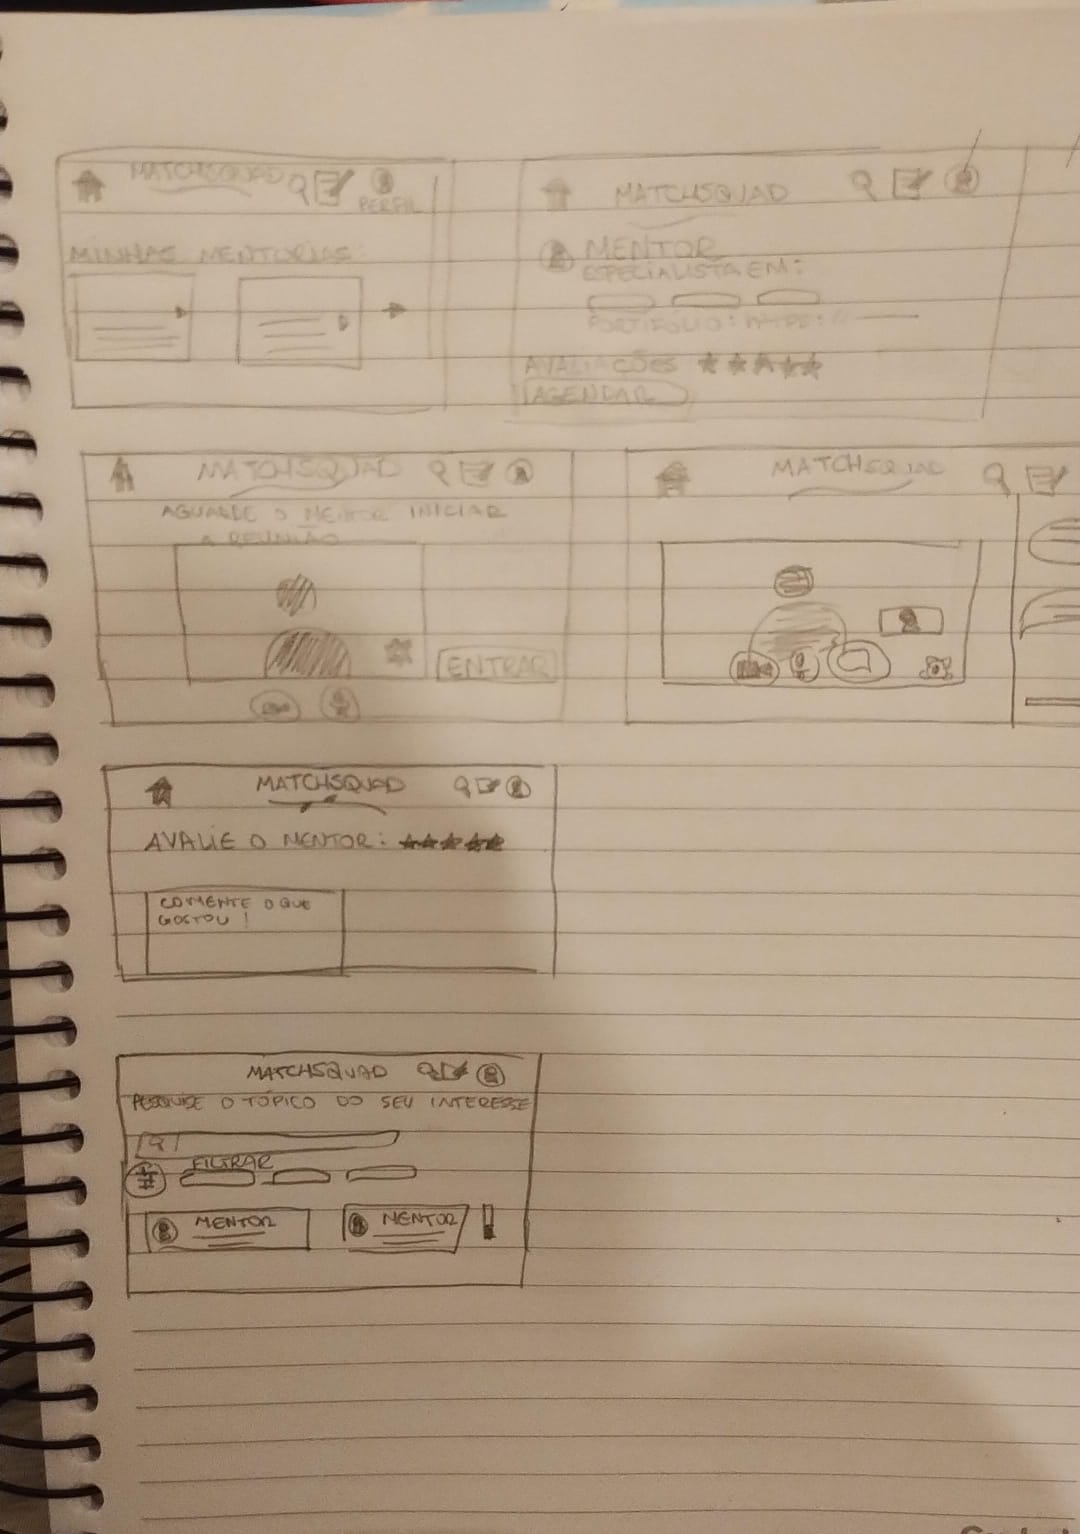 MATCHSQUAD
PERFIL
MINHAS MENTORIAS:
MATCHSQUAD
MENTOR
ESPECIALISTA EM:
PORTIFÓLIO: HTTPS://
AVALIAÇÕES
AGENDAR
MATCHSQUAD
AGUARDE O MENTOR INICIAR
A REUNIÃO
ENTRAR
MATCHSQUAD
MATCHSQUAD
AVALIE O MENTOR:
COMENTE O QUE
GOSTOU!
MATCHSQUAD
PESQUISE O TÓPICO DO SEU INTERESSE
FILTRAR
#
MENTOR
MENTOR